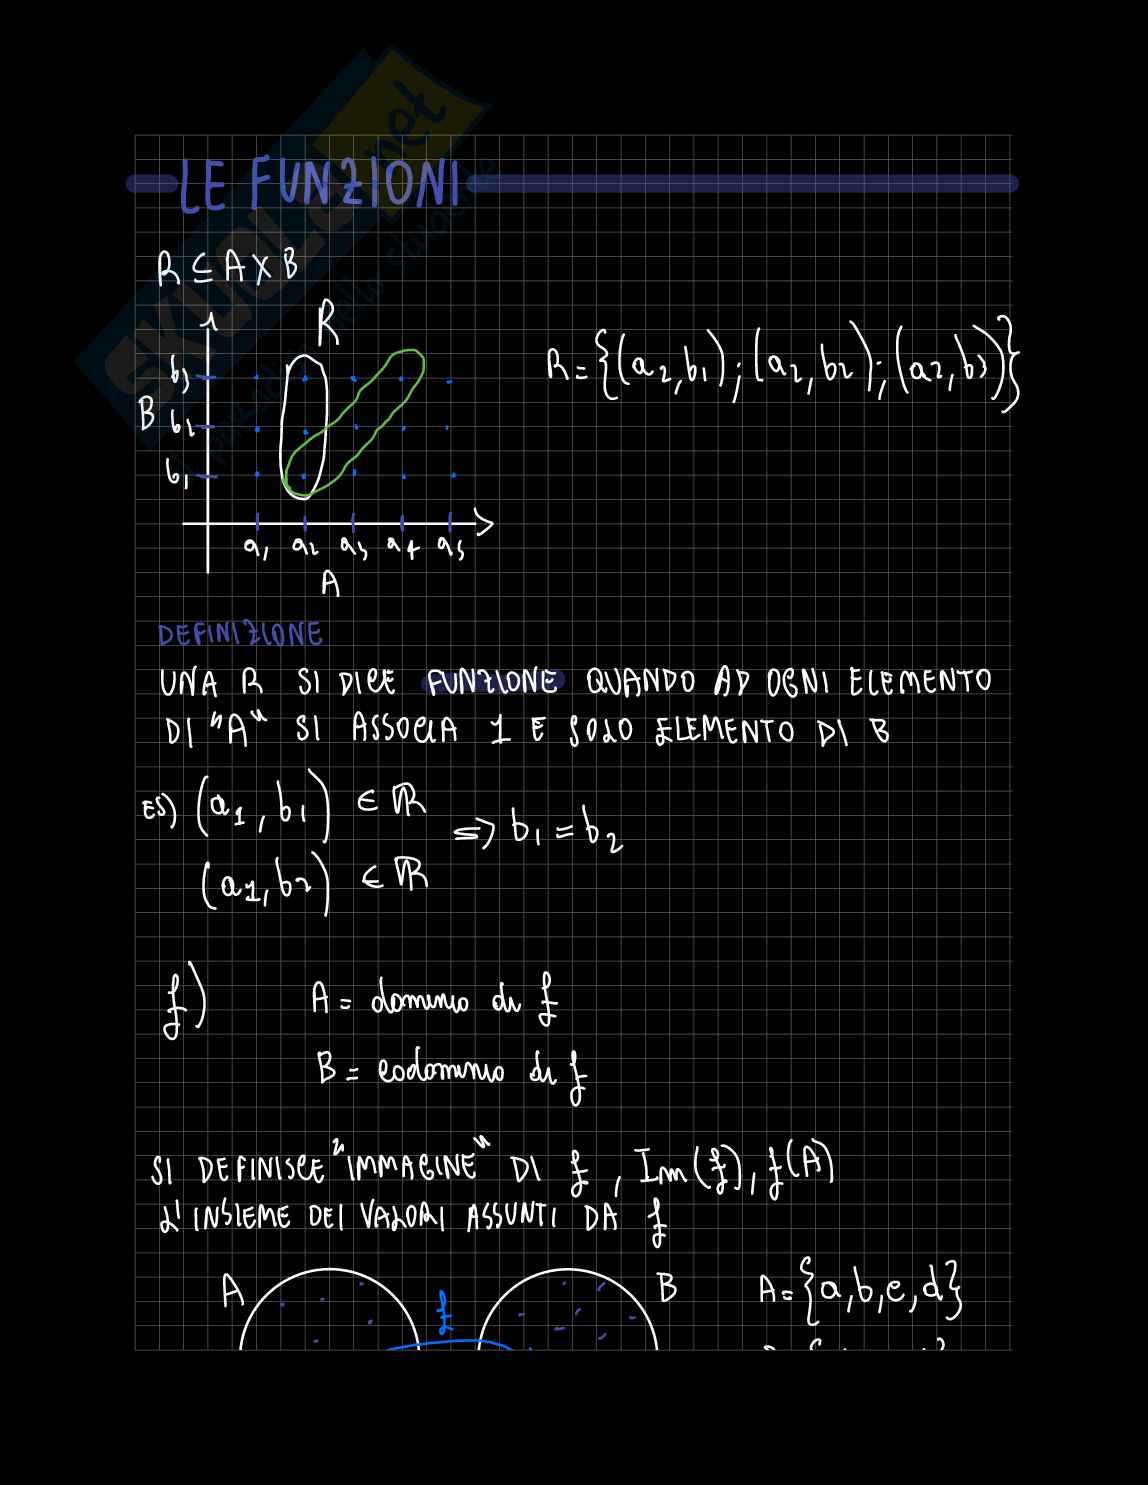 LE FUNZIONI
R ⊆ A X B
R
R = {(a2, b1); (a2, b2); (a2, b3)}
b3
B
b2
b1
a1 a2 a3 a4 a5
A
DEFINIZIONE
UNA R SI DICE FUNZIONE QUANDO AD OGNI ELEMENTO
DI "A" SI ASSOCIA 1 E SOLO ELEMENTO DI B
ES) (a1, b1) ∈ ℝ
⇒ b1 = b2
(a1, b2) ∈ ℝ
f)
A = dominio di f
B = codominio di f
SI DEFINISCE "IMMAGINE" DI f, Im(f), f(A)
L'INSIEME DEI VALORI ASSUNTI DA f
A
f
B
A = {a, b, c, d}
SKUOLA.net